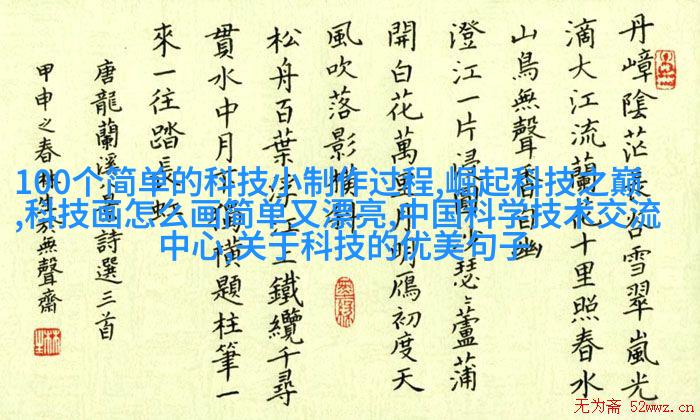 丹嶂陰茫谷雪翠嵐光
滴大江流蘭花十里照春水
山鳥無聲香自幽
澄江一片浸圓沙瑟〻蘆蒲
開白花萬里月明鴈初度天
風吹落影
松舟百葉浮江上鐵纜千尋
貫水中月獨橫題柱筆一
來一往踏長虹
唐龍蘭溪詩選三首
甲申之春無聲齋
100个简单的科技小制作过程,崛起科技之巅
,科技画怎么画简单又漂亮,中国科学技术交流
中心,关于科技的优美句子
无为斋 52wwz.cn